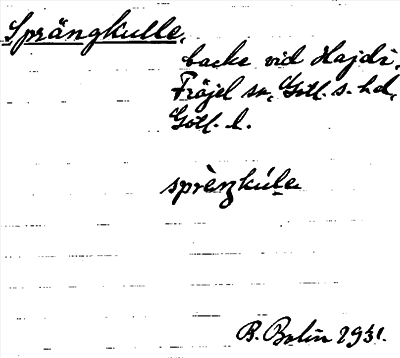 Sprängkulle,
backe vid Hajdi,
Fröjel sn, Gotl. s. hd,
Gotl. l.
sprènzkúle
B. Bolin 1931.